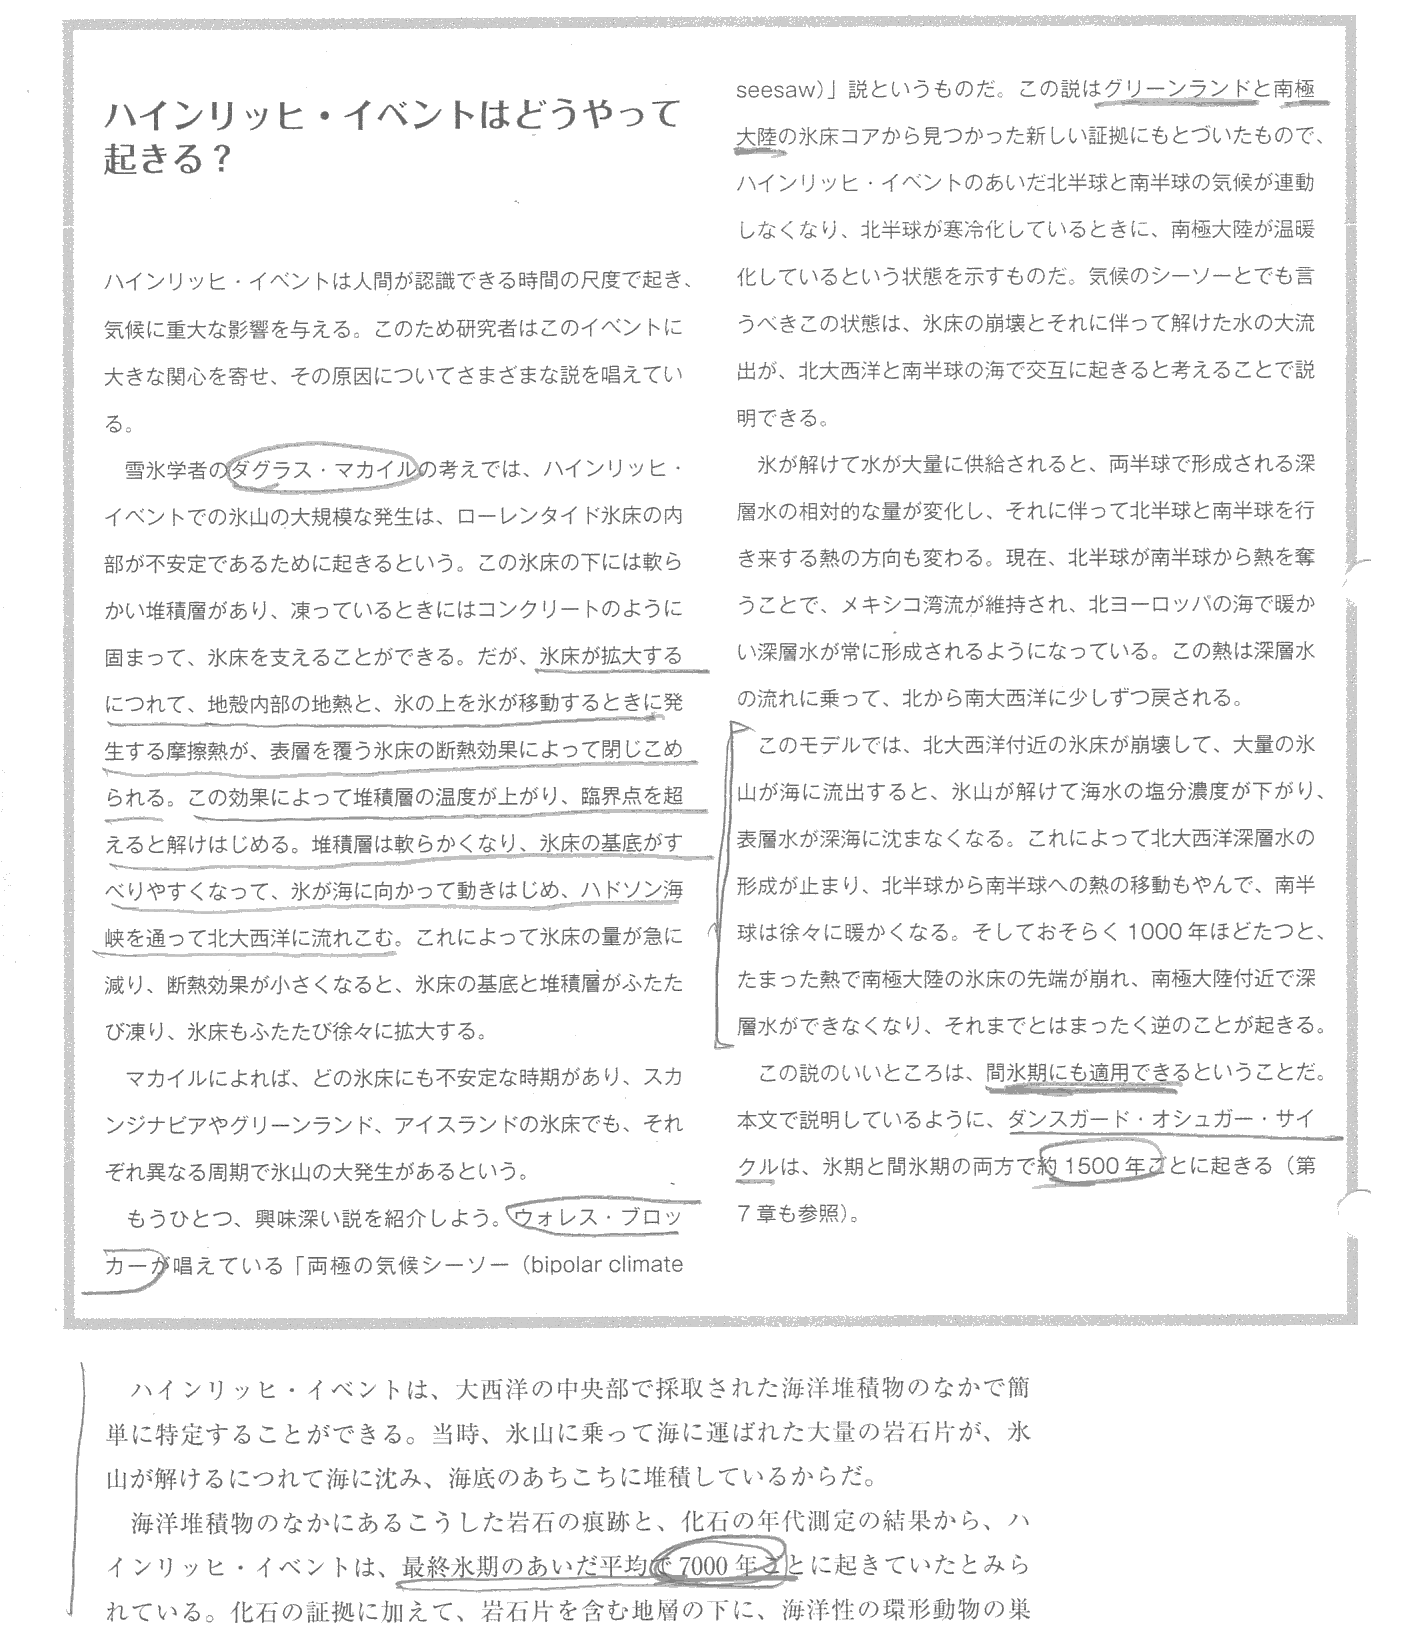 ハインリッヒ・イベントはどうやって
起きる？
ハインリッヒ・イベントは人間が認識できる時間の尺度で起き、
気候に重大な影響を与える。このため研究者はこのイベントに
大きな関心を寄せ、その原因についてさまざまな説を唱えてい
る。
雪氷学者のダグラス・マカイルの考えでは、ハインリッヒ・
イベントでの氷山の大規模な発生は、ローレンタイド氷床の内
部が不安定であるために起きるという。この氷床の下には軟ら
かい堆積層があり、凍っているときにはコンクリートのように
固まって、氷床を支えることができる。だが、氷床が拡大する
につれて、地殻内部の地熱と、氷の上を氷が移動するときに発
生する摩擦熱が、表層を覆う氷床の断熱効果によって閉じこめ
られる。この効果によって堆積層の温度が上がり、臨界点を超
えると解けはじめる。堆積層は軟らかくなり、氷床の基底がす
べりやすくなって、氷が海に向かって動きはじめ、ハドソン海
峡を通って北大西洋に流れこむ。これによって氷床の量が急に
減り、断熱効果が小さくなると、氷床の基底と堆積層がふたた
び凍り、氷床もふたたび徐々に拡大する。
マカイルによれば、どの氷床にも不安定な時期があり、スカ
ンジナビアやグリーンランド、アイスランドの氷床でも、それ
ぞれ異なる周期で氷山の大発生があるという。
もうひとつ、興味深い説を紹介しよう。ウォレス・ブロッ
カーが唱えている「両極の気候シーソー（bipolar climate
seesaw）」説というものだ。この説はグリーンランドと南極
大陸の氷床コアから見つかった新しい証拠にもとづいたもので、
ハインリッヒ・イベントのあいだ北半球と南半球の気候が連動
しなくなり、北半球が寒冷化しているときに、南極大陸が温暖
化しているという状態を示すものだ。気候のシーソーとでも言
うべきこの状態は、氷床の崩壊とそれに伴って解けた水の大流
出が、北大西洋と南半球の海で交互に起きると考えることで説
明できる。
氷が解けて水が大量に供給されると、両半球で形成される深
層水の相対的な量が変化し、それに伴って北半球と南半球を行
き来する熱の方向も変わる。現在、北半球が南半球から熱を奪
うことで、メキシコ湾流が維持され、北ヨーロッパの海で暖か
い深層水が常に形成されるようになっている。この熱は深層水
の流れに乗って、北から南大西洋に少しずつ戻される。
このモデルでは、北大西洋付近の氷床が崩壊して、大量の氷
山が海に流出すると、氷山が解けて海水の塩分濃度が下がり、
表層水が深海に沈まなくなる。これによって北大西洋深層水の
形成が止まり、北半球から南半球への熱の移動もやんで、南半
球は徐々に暖かくなる。そしておそらく1000年ほどたつと、
たまった熱で南極大陸の氷床の先端が崩れ、南極大陸付近で深
層水ができなくなり、それまでとはまったく逆のことが起きる。
この説のいいところは、間氷期にも適用できるということだ。
本文で説明しているように、ダンスガード・オシュガー・サイ
クルは、氷期と間氷期の両方で約1500年ごとに起きる（第
7章も参照）。
ハインリッヒ・イベントは、大西洋の中央部で採取された海洋堆積物のなかで簡
単に特定することができる。当時、氷山に乗って海に運ばれた大量の岩石片が、氷
山が解けるにつれて海に沈み、海底のあちこちに堆積しているからだ。
海洋堆積物のなかにあるこうした岩石の痕跡と、化石の年代測定の結果から、ハ
インリッヒ・イベントは、最終氷期のあいだ平均で7000年ごとに起きていたとみら
れている。化石の証拠に加えて、岩石片を含む地層の下に、海洋性の環形動物の巣